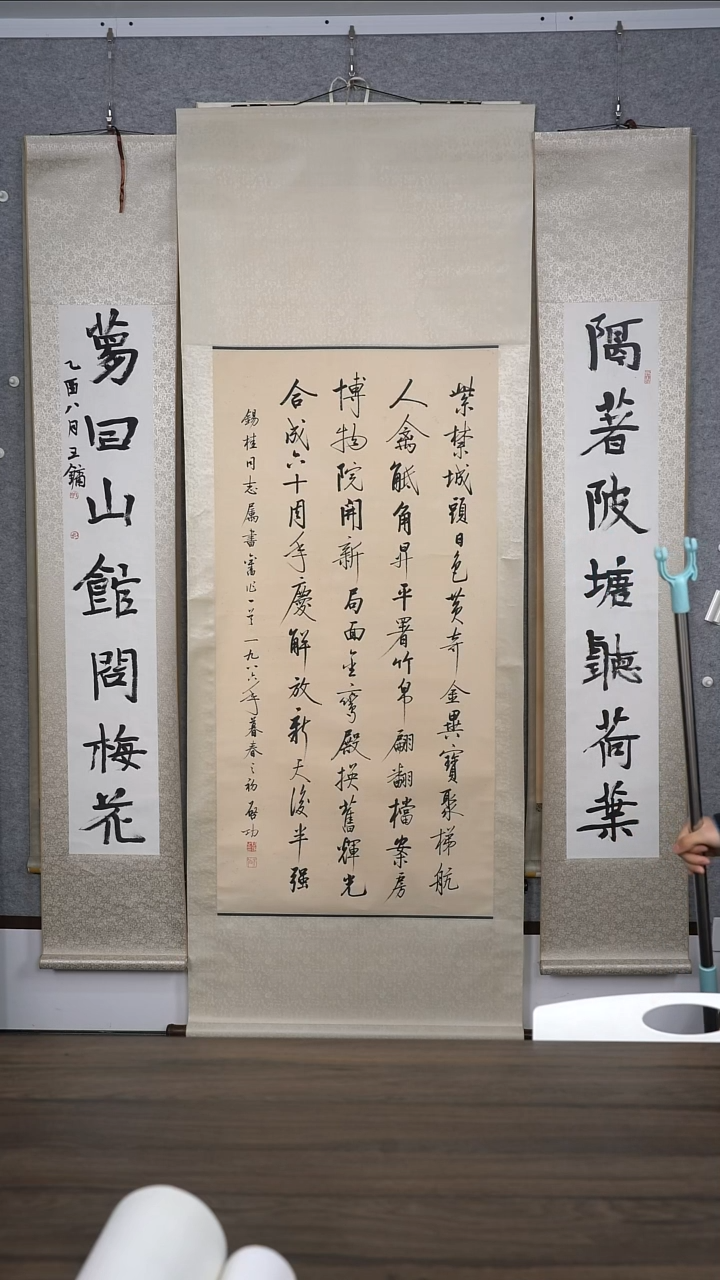 隔著陂塘聽荷葉
紫禁城頭日色黄奇金異寶聚梯航
人禽觝角昇平署竹帛翩翻檔案房
博物院開新局面金鑾殿换舊輝光
合成六十周年慶解放新天後半强
錫桂同志属書舊作一首一九八六年暮春之初啟功
夢回山館問梅花
乙酉八月王鏞